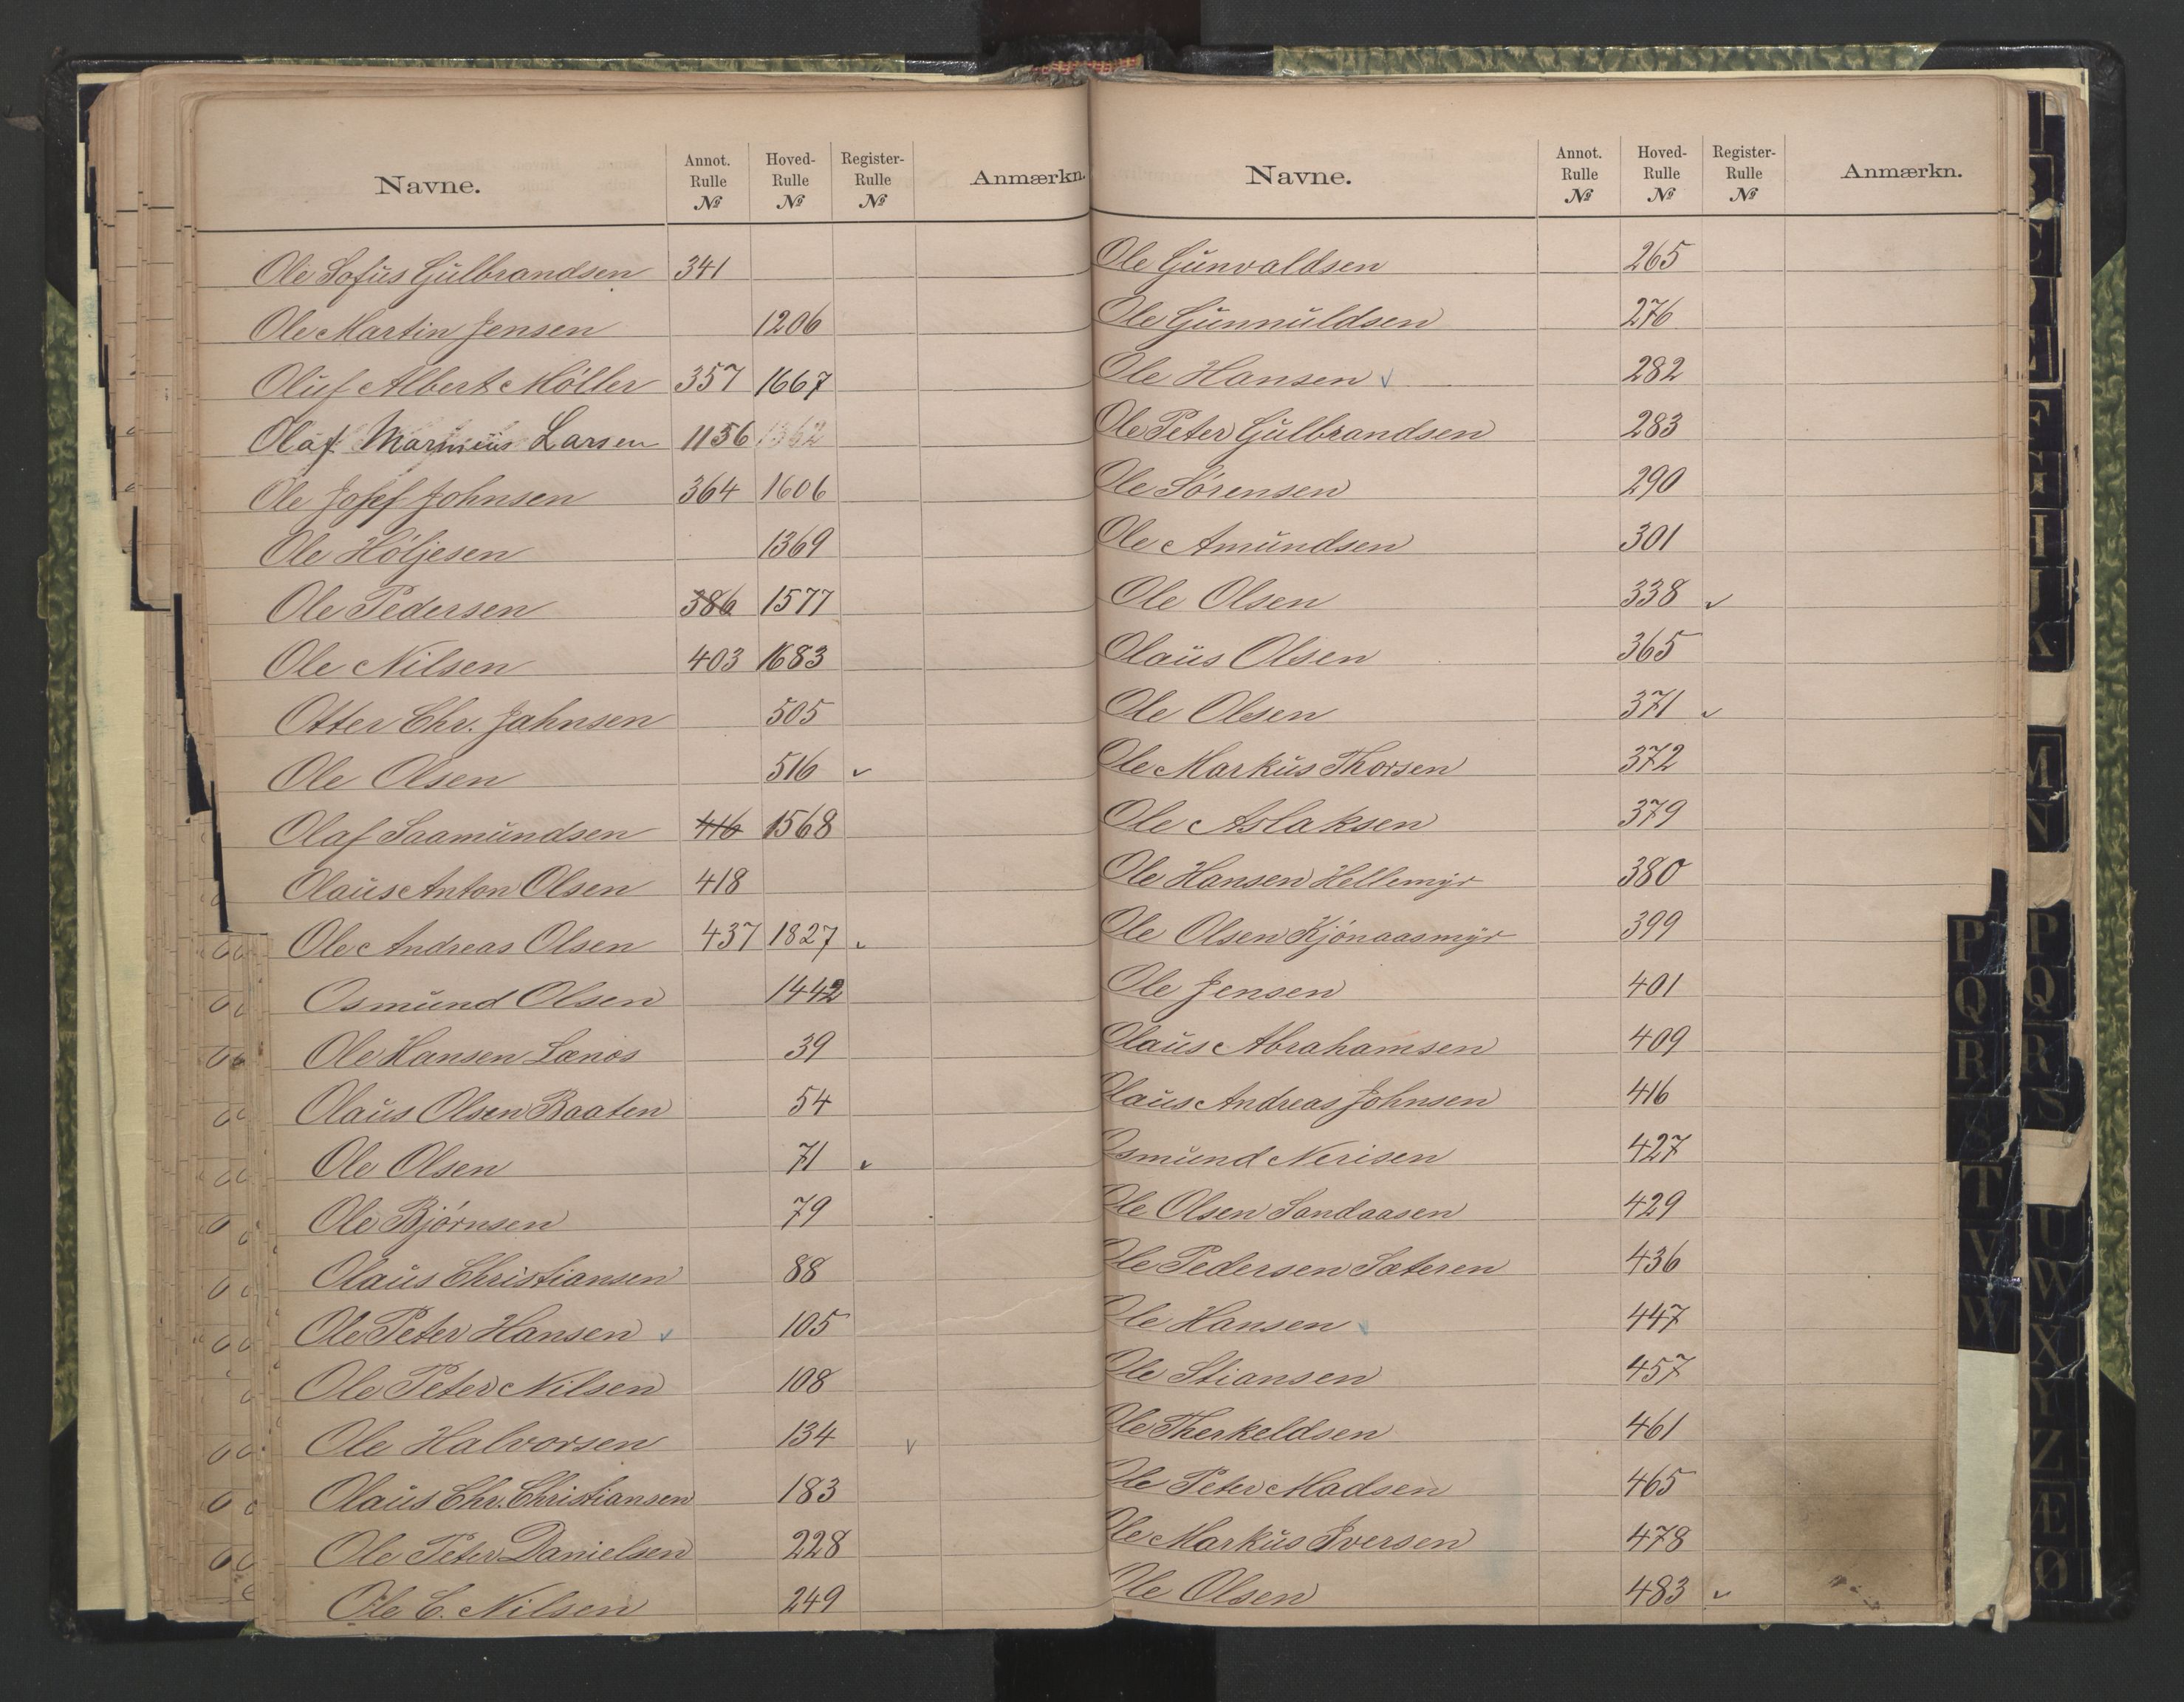 Navne. Annot. Rulle № Hoved-Rulle № Register-Rulle № Anmærkn.
Ole Sofus Gulbrandsen 341
Ole Martin Jensen 1206
Oluf Albert Möller 357 1667
Olaf Marinius Larsen 1156 1362
Ole Josef Johnsen 364 1606
Ole Höljesen 1369
Ole Pedersen 386 1577
Ole Nilsen 403 1683
Otter Chr. Jahnsen 505
Ole Olsen 516 ✓
Olaf Saamundsen 416 1568
Olaus Anton Olsen 418
Ole Andreas Olsen 437 1827 ✓
Osmund Olsen 1442
Ole Hansen Lænes 39
Olaus Olsen Baaten 54
Ole Olsen 71 ✓
Ole Björnsen 79
Olaus Christiansen 88
Ole Peter Hansen ✓ 105
Ole Peter Nilsen 108
Ole Halvorsen 134 ✓
Olaus Chr. Christiansen 183
Ole Peter Danielsen 228
Ole C. Nilsen 249
Navne. Annot. Rulle № Hoved-Rulle № Register-Rulle № Anmærkn.
Ole Gunvaldsen 265
Ole Gunnuldsen 276
Ole Hansen ✓ 282
Ole Peter Gulbrandsen 283
Ole Sörensen 290
Ole Amundsen 301
Ole Olsen 338 ✓
Olaus Olsen 365
Ole Olsen 371 ✓
Ole Markus Thorsen 372
Ole Aslaksen 379
Ole Hansen Hellemyr 380
Ole Olsen Kjönaasmyr 399
Ole Jensen 401
Olaus Abrahamsen 409
Olaus Andreas Johnsen 416
Osmund Nerisen 427
Ole Olsen Sandaasen 429
Ole Pedersen Sæteren 436
Ole Hansen ✓ 447
Ole Stiansen 457
Ole Therkeldsen 461
Ole Peter Madsen 465
Ole Markus Iversen 478
Ole Olsen 483 ✓
P
Q
R
S
T
V
W
B
C
D
E
F
G
H
J
K
M
N
P
Q
R
S
U
W
X
Y
Z
Æ
Ø